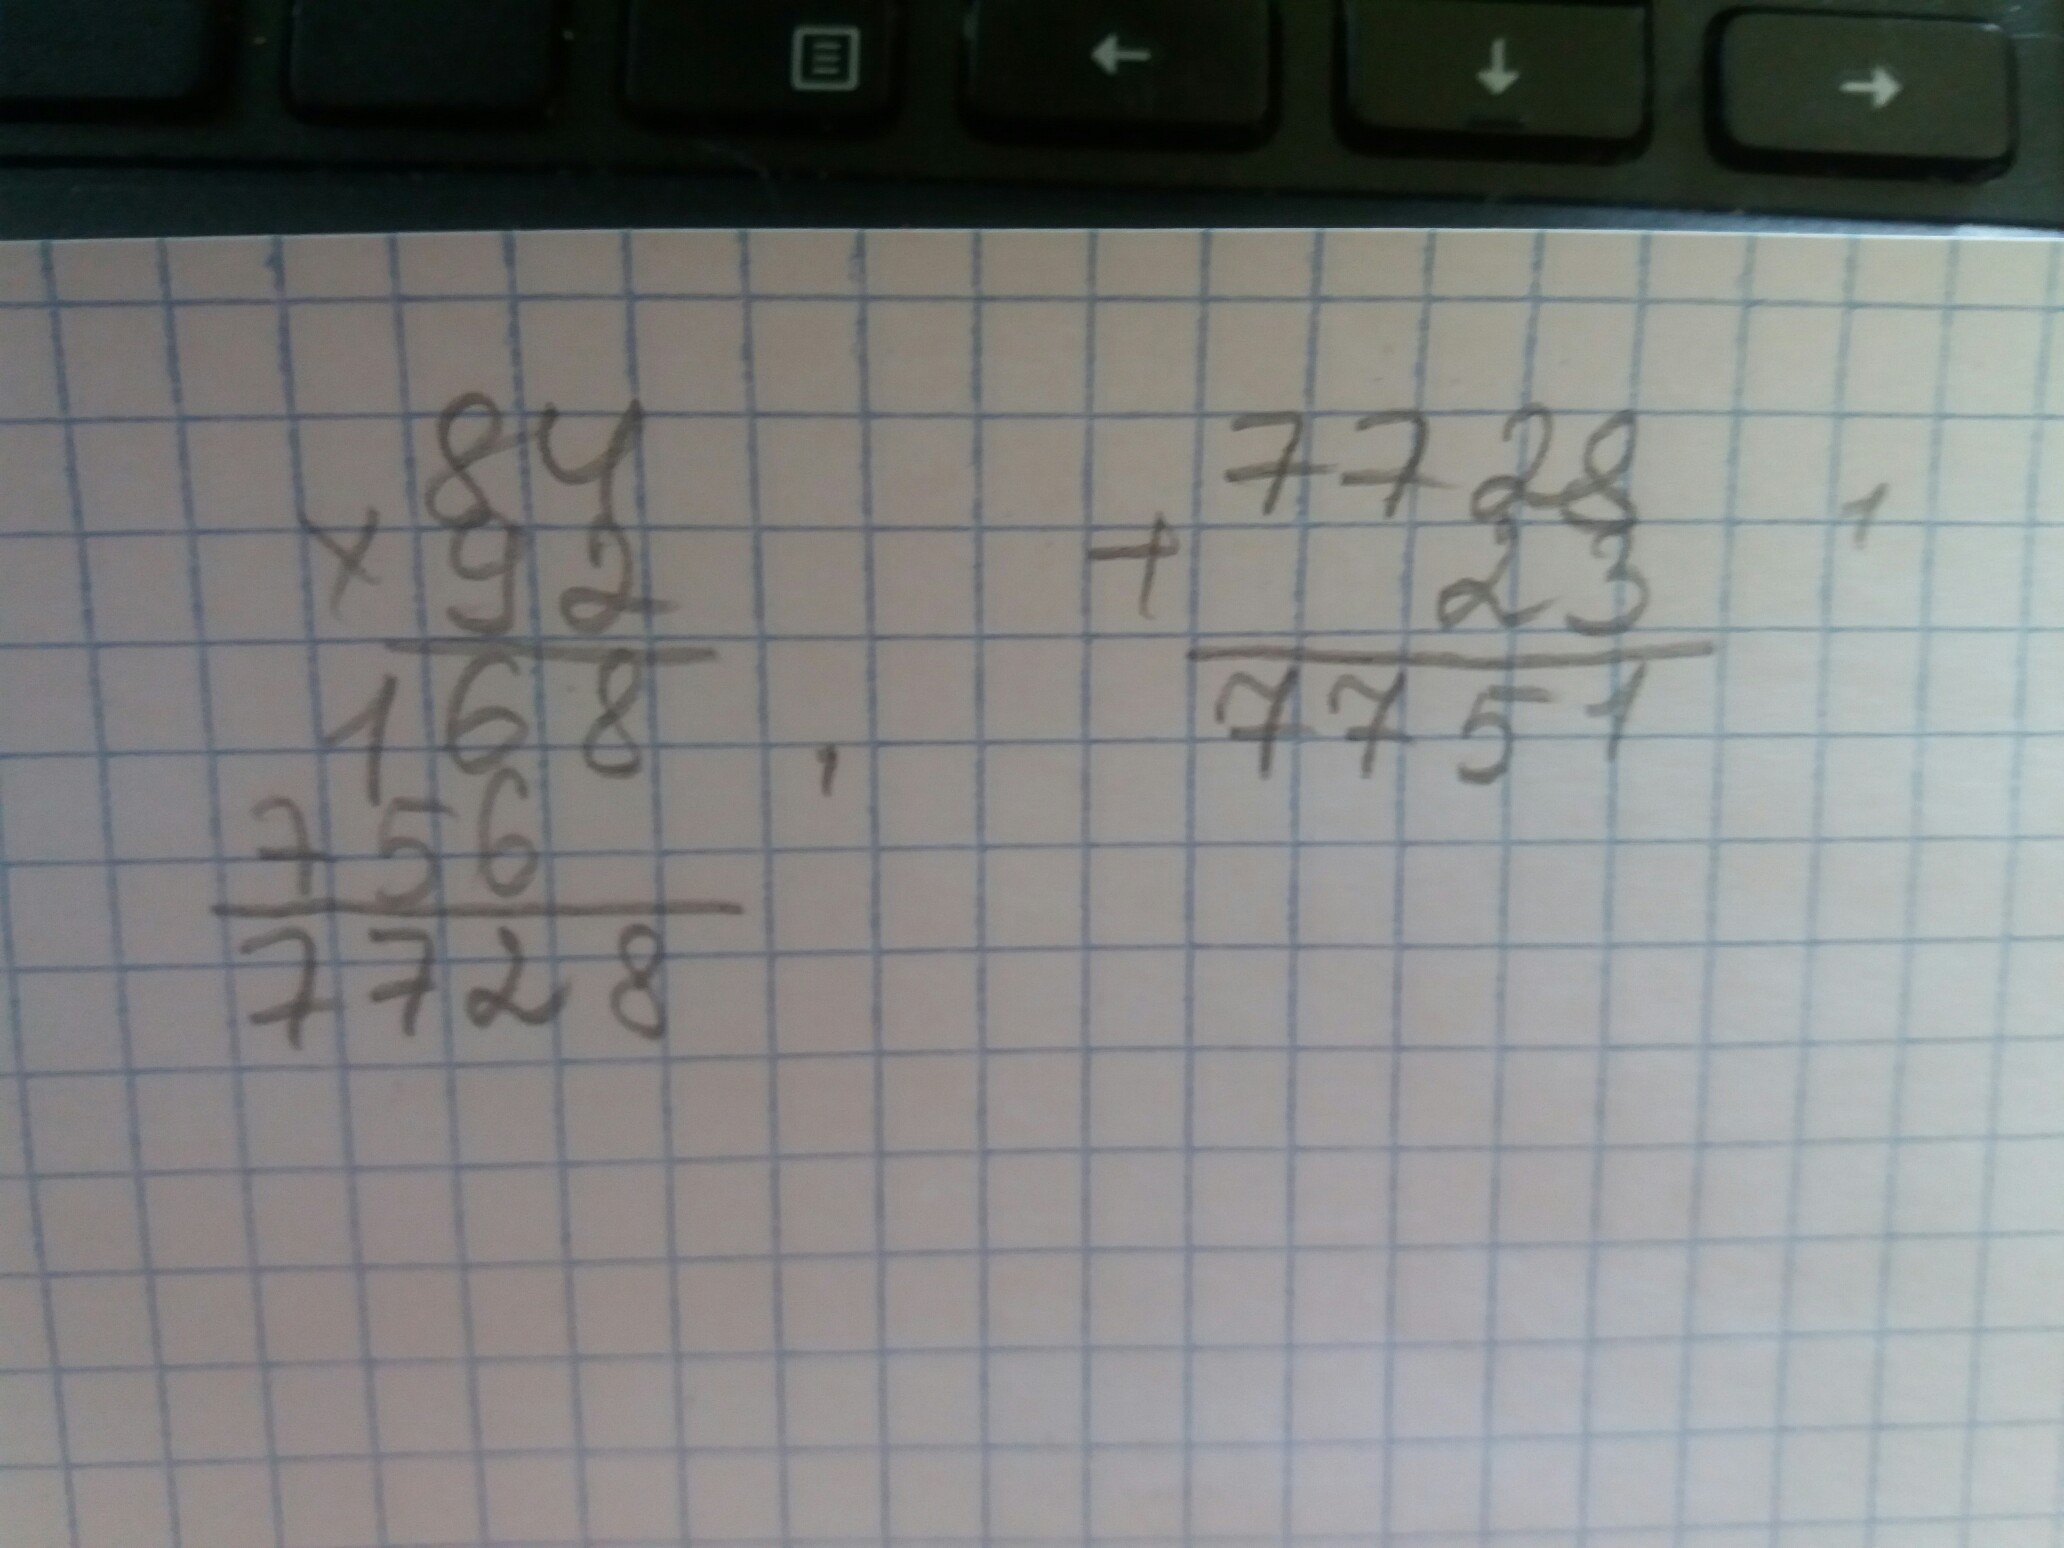 84
× 92
168
756
7728
7728
+ 23
7751